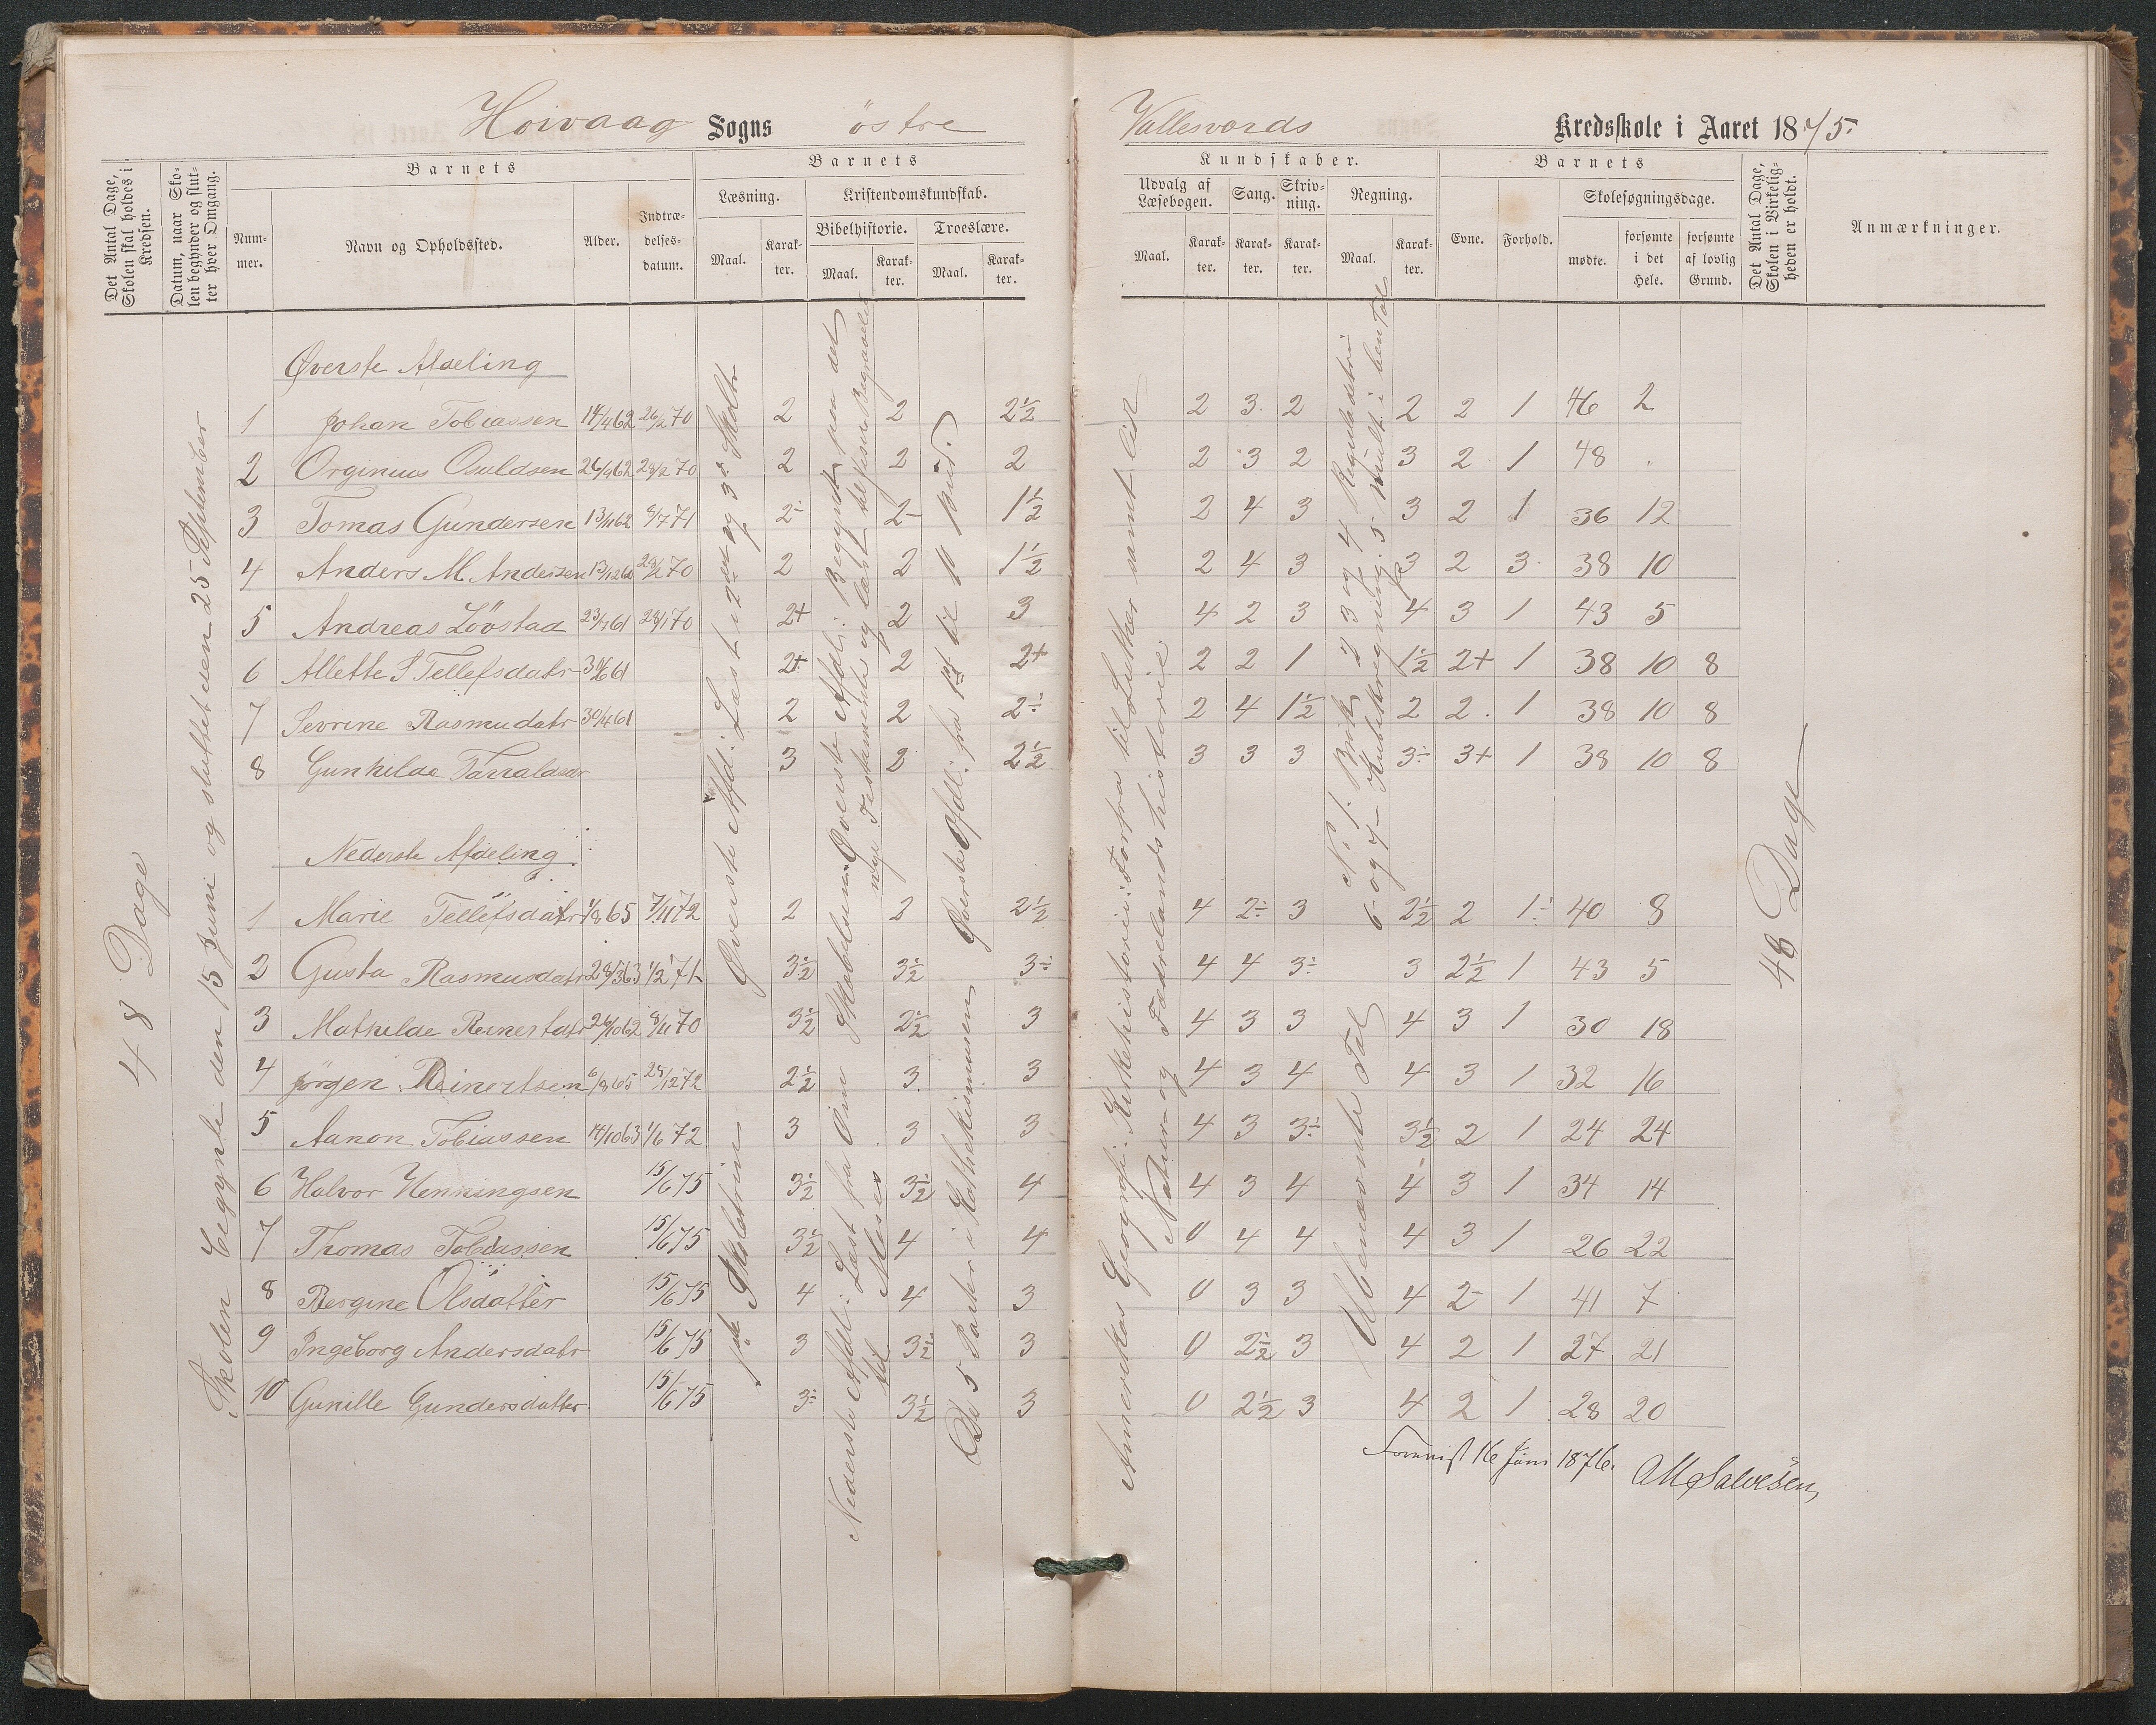 Hoivaag Sogns östre Vallesværds Kredsskole i Aaret 1875.
Det Antal Dage, Skolen skal holdes i Kredsen.
Datum, naar Skolen begynder og slutter hver Omgang.
Barnets
Nummer.
Navn og Opholdssted.
Alder.
Indtrædelsesdatum.
Barnets
Læsning.
Kristendomskundskab.
Bibelhistorie.
Troeslære.
Maal.
Karakter.
Maal.
Karakter.
Maal.
Karakter.
Kundskaber.
Udvalg af Læsebogen.
Sang.
Skrivning.
Regning.
Maal.
Karakter.
Karakter.
Karakter.
Maal.
Karakter.
Barnets
Evne.
Forhold.
Skolesøgningsdage.
mødte.
forsømte i det Hele.
forsømte af lovlig Grund.
Det Antal Dage, Skolen i Virkeligheden er holdt.
Anmærkninger.
48 Dage
Skolen begynte den 15 Juni og sluttet den 25 September
Øverste Afdeling
1 Johan Tobiassen 14/4 62 26/2 70 2 2 2½ 2 3. 2 2 2 1 46 2
2 Orginius Osuldsen 26/4 62 28/2 70 2 2 2 2 3 2 3 2 1 48 .
3 Tomas Gundersen 13/11 62 8/7 71 2- 2- 1½ 2 4 3 3 2 1 36 12
4 Anders M Andersen 13/12 60 28/2 70 2 2 1½ 2 4 3 3 2 3. 38 10
5 Andreas Lövstad 23/7 61 28/1 70 2+ 2 3 4 2 3 4 3 1 43 5
6 Allette S Tellefsdatr 30/6 61 2+ 2 2+ 2 2 1 1½ 2+ 1 38 10 8
7 Sevrine Rasmudatr 30/4 61 2 2 2÷ 2 4 1½ 2 2. 1 38 10 8
8 Gunhilde Tarraldsdr 3 2 2½ 3 3 3 3÷ 3+ 1 38 10 8
Nederste Afdeling.
1 Marie Tellefsdatr 1/8 65 7/11 72 2 2 2½ 4 2÷ 3 2½ 2 1÷ 40 8
2 Gusta Rasmusdatr 28/3 63 1/2 71 3½ 3½ 3÷ 4 4 3÷ 3 2½ 1 43 5
3 Mathilde Reinertdatr 26/10 62 8/11 70 3½ 2½ 3 4 3 3 4 3 1 30 18
4 Jörgen Reinertsen 6/8 65 28/12 72 2½ 3. 3 4 3 4 4 3 1 32 16
5 Aanon Tobiassen 14/10 63 1/6 72 3 3 3 4 3 3÷ 3½ 2 1 24 24
6 Halvor Henningsen 15/6 75 3½ 3½ 4 4 3 4 4 3 1 34 14
7 Thomas Tobiassen 15/6 75 3½ 4 4 0 4 4 4 3 1 26 22
8 Bergine Olsdatter 15/6 75 4 4 3 0 3 3 4 2- 1 41 7
9 Ingeborg Andersdatr 15/6 75 3 3½ 3 0 2½ 3 4 2 1 27 21
10 Gunille Gundersdatter. 15/6 75 3÷ 3½ 3 0 2½ 3 4 2 1 28 20
Øverste Afdl: Læst i 2det og 3die Skoltr
1ste Skoletrin
Øverste Afdl: Begyndt paa det nye Testamente og læst til Jesu Begravelse
Nederste Afdl: Læst fra Om Skabelsen Moses
Øverste Afdl: fra 1ste til 10 Bud.
De 5 Parter i Kathekismusen
Amerekas Geografi. Kirkehistorien: Fortfra til Luther samt lidt Natur- og Fædrelandshistorie
N: 1. Brøk 2 3 og 4 Reguladetri 5 Mult. i ben Tal
6 og 7 - Kubikregning
Ubenævnte Tal
48 Dage
16 Juni 1876. AMSalvesen,